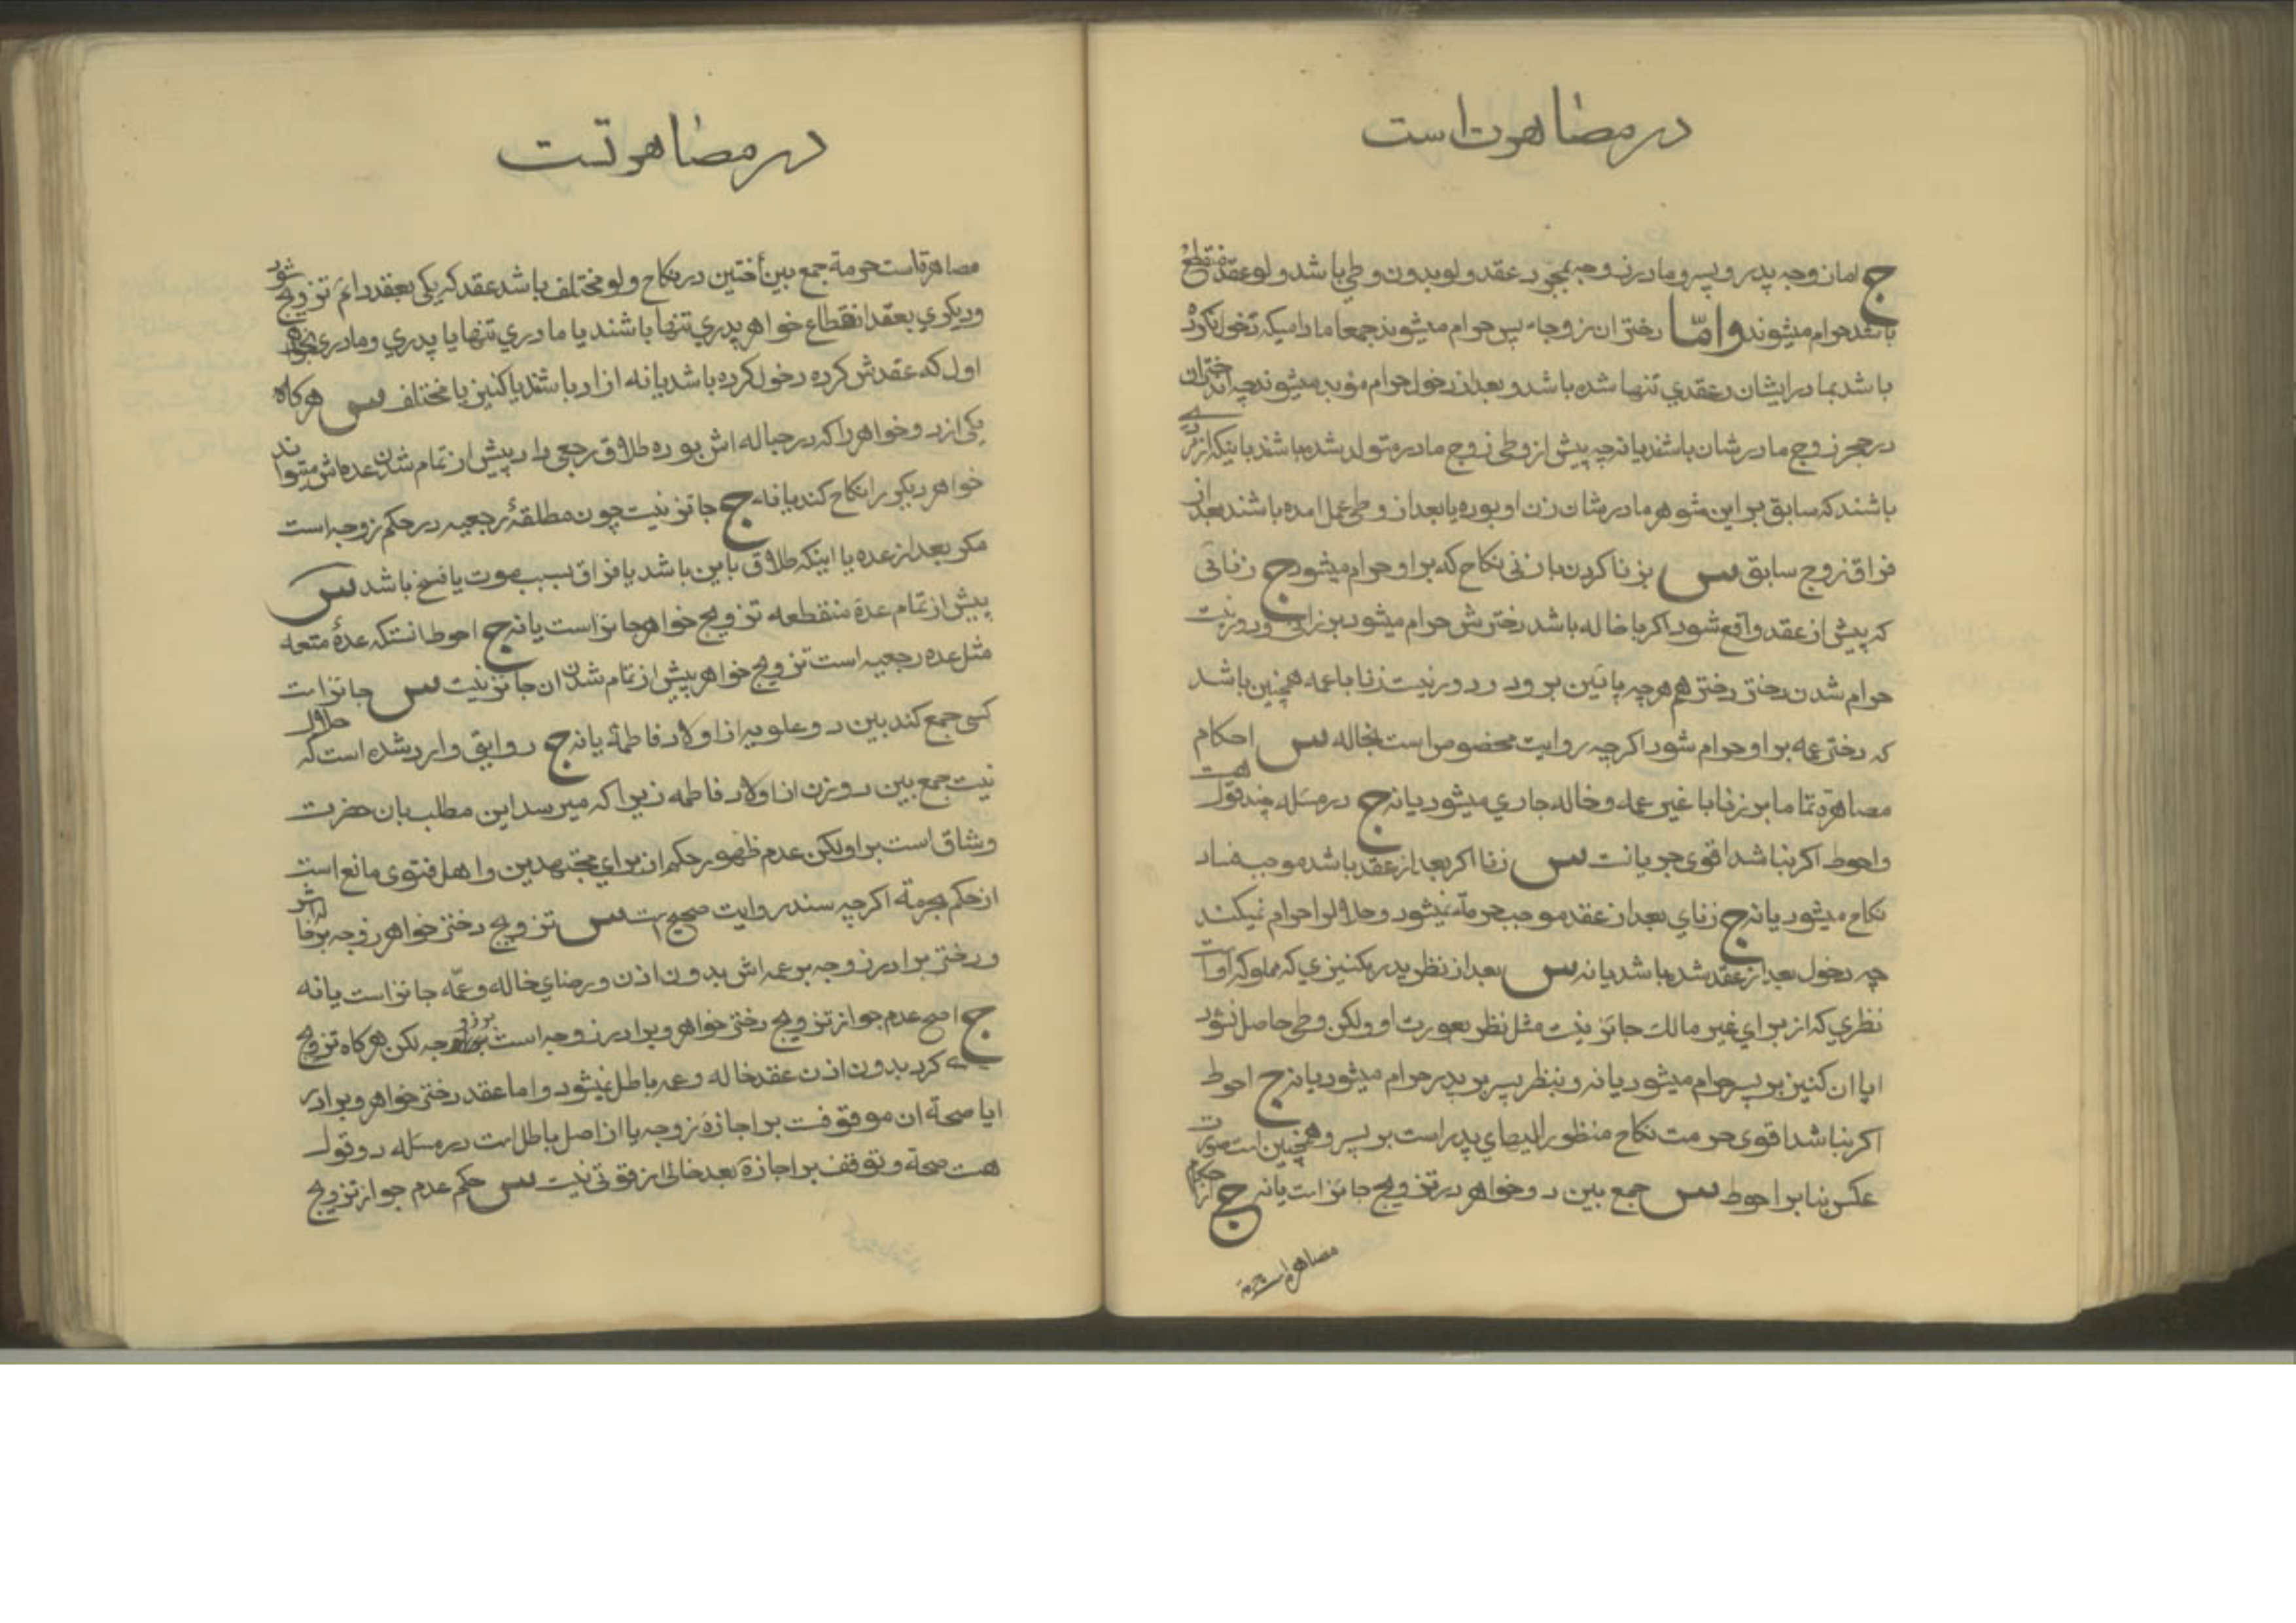 در مصاهرت است
ج اما زوجه پدر و پسر و مادر زوجه بمجرد عقد ولو بدون وطي باشد ولو عقد منقطع
باشد حرام میشوند واما دختران زوجات پس حرام میشوند جمعا مادامیکه دخول نکرده
باشد بمادر ایشان و عقدي تنها شده باشد و بعد از دخول حرام مؤبد میشوند چه ان دختران
در حجر زوج مادرشان باشند یا نه چه پیش از وطی زوج مادر متولد شده باشند یا بینکه از
باشند که سابق بر این شوهر مادرشان زن او بوده یا بعد از وطی عمل امده باشند بعد از
فراق زوج سابق س بزنا کردن با زنی نکاح که بر او حرام میشود ج زنائی
که پیش از عقد واقع شود اکر با خاله باشد دخترش حرام میشود بر زانی و دور نیست
حرام شدن دختر دختر هم هر چه پائین برود و دور نیست زنا با عمه همچنین باشد
که دختر عمه بر او حرام شود اکرچه روایت مخصوص است بخاله س احکام
مصاهرة تماما بر زنا با غیر عمه و خاله جاري میشود یا نه ج در مسئله چند قول هست
و احوط اکر نباشد اقوی جریانت س زنا اکر بعد از عقد باشد موجب فساد
نکاح میشود یا نه ج زناي بعد از عقد موجب حرمة نمیشود و حلال را حرام نمیکند
چه دخول بعد از عقد شده باشد یا نه س بعد از نظر پدر بکنیزي که مملوکه او است
نظري که از براي غیر مالك جائز نیست مثل نظر بعورت او ولکن وطی حاصل نشود
ایا ان کنیز بر پسر حرام میشود یا نه و بنظر پسر بر پدر حرام میشود یا نه ج احوط
اکر نباشد اقوی حرمت نکاح منظور الیهاي پدر است بر پسر و همچنین است صورت
عکس بنا بر احوط س جمع بین دو خواهر در تزویج جائز است یا نه ج از احکام
مصاهرة است حرمة
در مصاهرتست
مصاهرة است حرمة جمع بین أختین در نکاح ولو مختلف باشد عقد که یکی بعقد دائم تزویج شود
و دیکري بعقد انقطاع خواهر پدري تنها باشند یا مادري تنها یا پدري و مادري خواه
اول که عقدش کرده دخول کرده باشد یا نه ازاد باشند یا کنیز یا مختلف س هرکاه
یکی از دو خواهر را که در حباله اش بوده طلاق رجعی داد پیش از تمام شدن عده اش میتواند
خواهر دیکر را نکاح کند یا نه ج جائز نیست چون مطلقهٔ رجعیه در حکم زوجه است
مکر بعد از عده یا اینکه طلاق باین باشد یا فراق بسبب موت یا فسخ باشد س
پیش از تمام عدهٔ منقطعه تزویج خواهر جائز است یا نه ج احوط انستکه عدهٔ متعه
مثل عده رجعیه است تزویج خواهر پیش از تمام شدن ان جائز نیست س جائز است
کسی جمع کند بین دو علویه از اولاد فاطمهٔ یا نه ج روایتی وارد شده است که حلال
نیست جمع بین دو زن از اولاد فاطمه زیرا که میرسد این مطلب بان حضرت
و شاق است بر او لکن عدم ظهور حکم ان براي مجتهدین و اهل فتوی مانع است
از حکم بحرمة اکرچه سند روایت صحیح است س تزویج دختر خواهر زوجه بر خاله اش
و دختر برادر زوجه بر عمه اش بدون اذن و رضاي خاله و عمّه جائز است یا نه
ج اصح عدم جواز تزویج دختر خواهر و برادر زوجه است بر زوجه لکن هرکاه تزویج
کرد بدون اذن عقد خاله و عمه باطل نمیشود و اما عقد دختر خواهر و برادر
ایا صحة ان موقوفست بر اجازهٔ زوجه یا از اصل باطل است در مسئله دو قول
هست صحة و توقف بر اجازهٔ بعد خالی از قوتی نیست س حکم عدم جواز تزویج